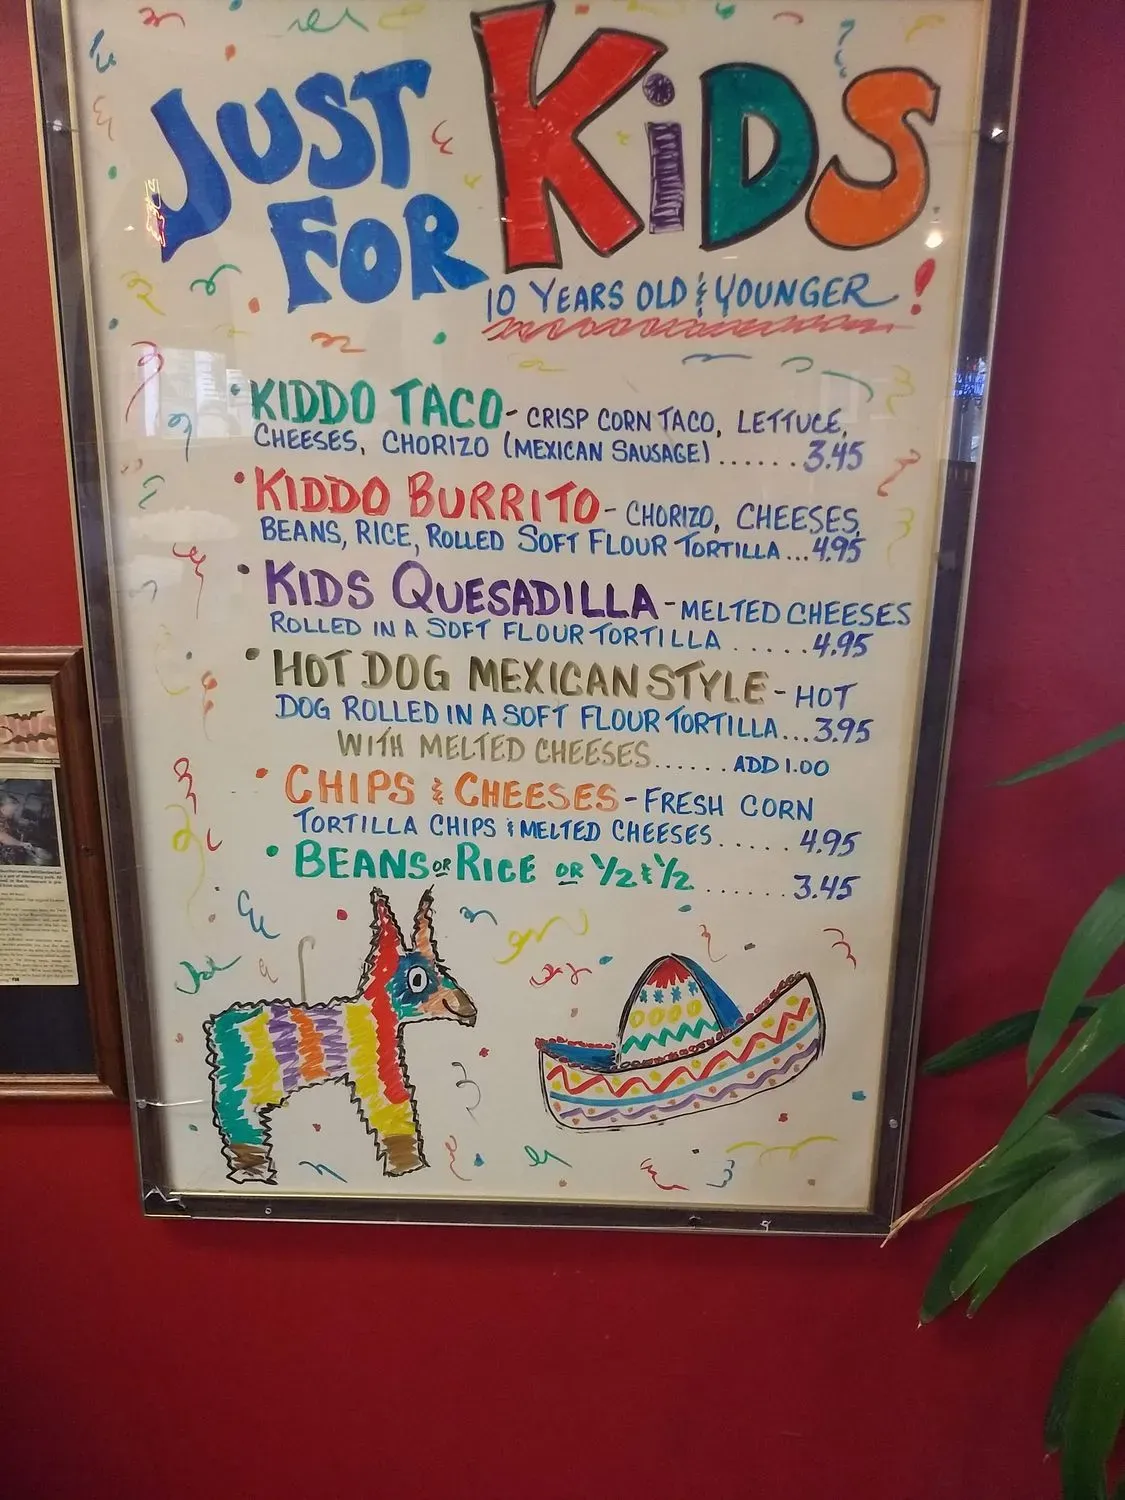 JUST
FOR
KiDS
10 YEARS OLD & YOUNGER!
• KIDDO TACO - CRISP CORN TACO, LETTUCE,
CHEESES, CHORIZO (MEXICAN SAUSAGE) ...... 3.45
• KIDDO BURRITO - CHORIZO, CHEESES,
BEANS, RICE, ROLLED SOFT FLOUR TORTILLA ... 4.95
• KIDS QUESADILLA - MELTED CHEESES
ROLLED IN A SOFT FLOUR TORTILLA ..... 4.95
• HOT DOG MEXICAN STYLE - HOT
DOG ROLLED IN A SOFT FLOUR TORTILLA... 3.95
WITH MELTED CHEESES...... ADD 1.00
• CHIPS & CHEESES - FRESH CORN
TORTILLA CHIPS & MELTED CHEESES ..... 4.95
• BEANS OR RICE OR ½ & ½ ...... 3.45